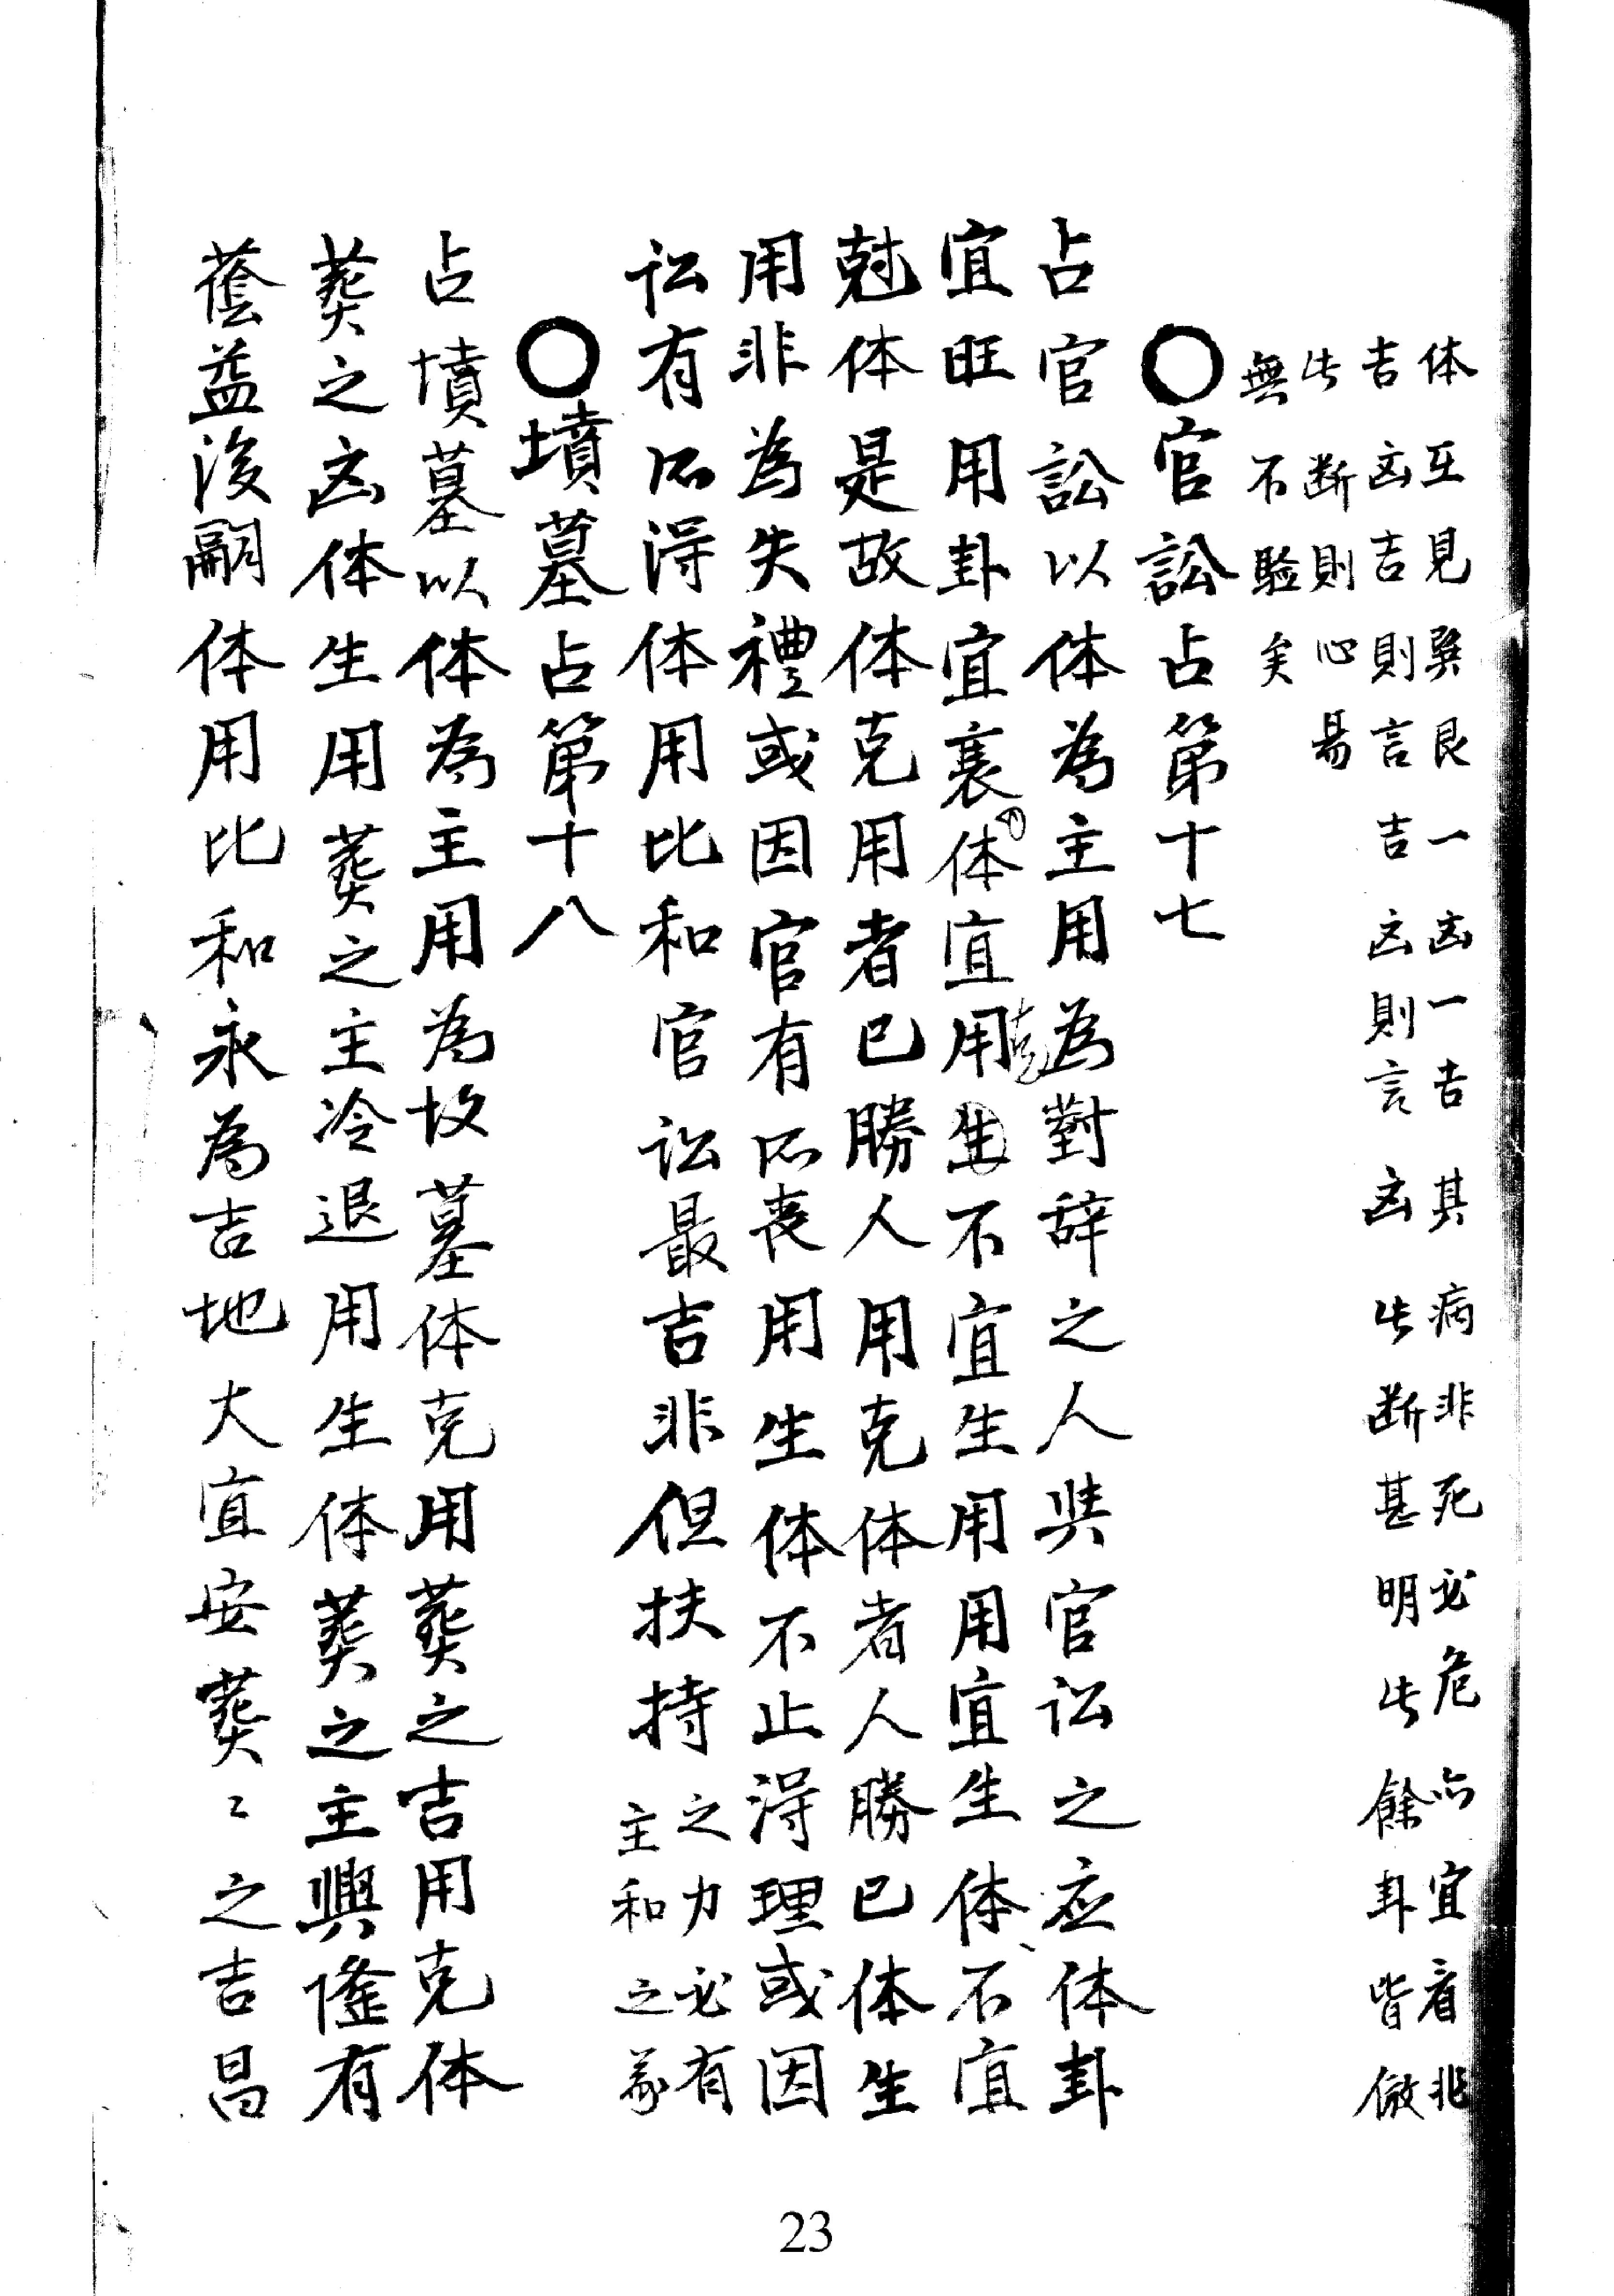 体互見巽艮一凶一吉其病非死必危亦宜看兆
吉凶吉則言吉凶則言凶此断甚明此餘卦皆倣
此断則心易
無不驗矣
〇官訟占第十七
占官訟以体為主用為對辞之人與官讼之应体卦
宜旺用卦宜衰体宜用生不宜生用用宜生体不宜
尅体是故体克用者已勝人用克体者人勝已体生
用非為失禮或因官有所丧用生体不止得理或因
讼有所得体用比和官讼最吉非但扶持之力必有
主和之义
〇墳墓占第十八
占墳墓以体為主用為坟墓体克用葬之吉用克体
葬之凶体生用葬之主冷退用生体葬之主興隆有
蔭益後嗣体用比和永為吉地大宜安葬〻之吉昌
23